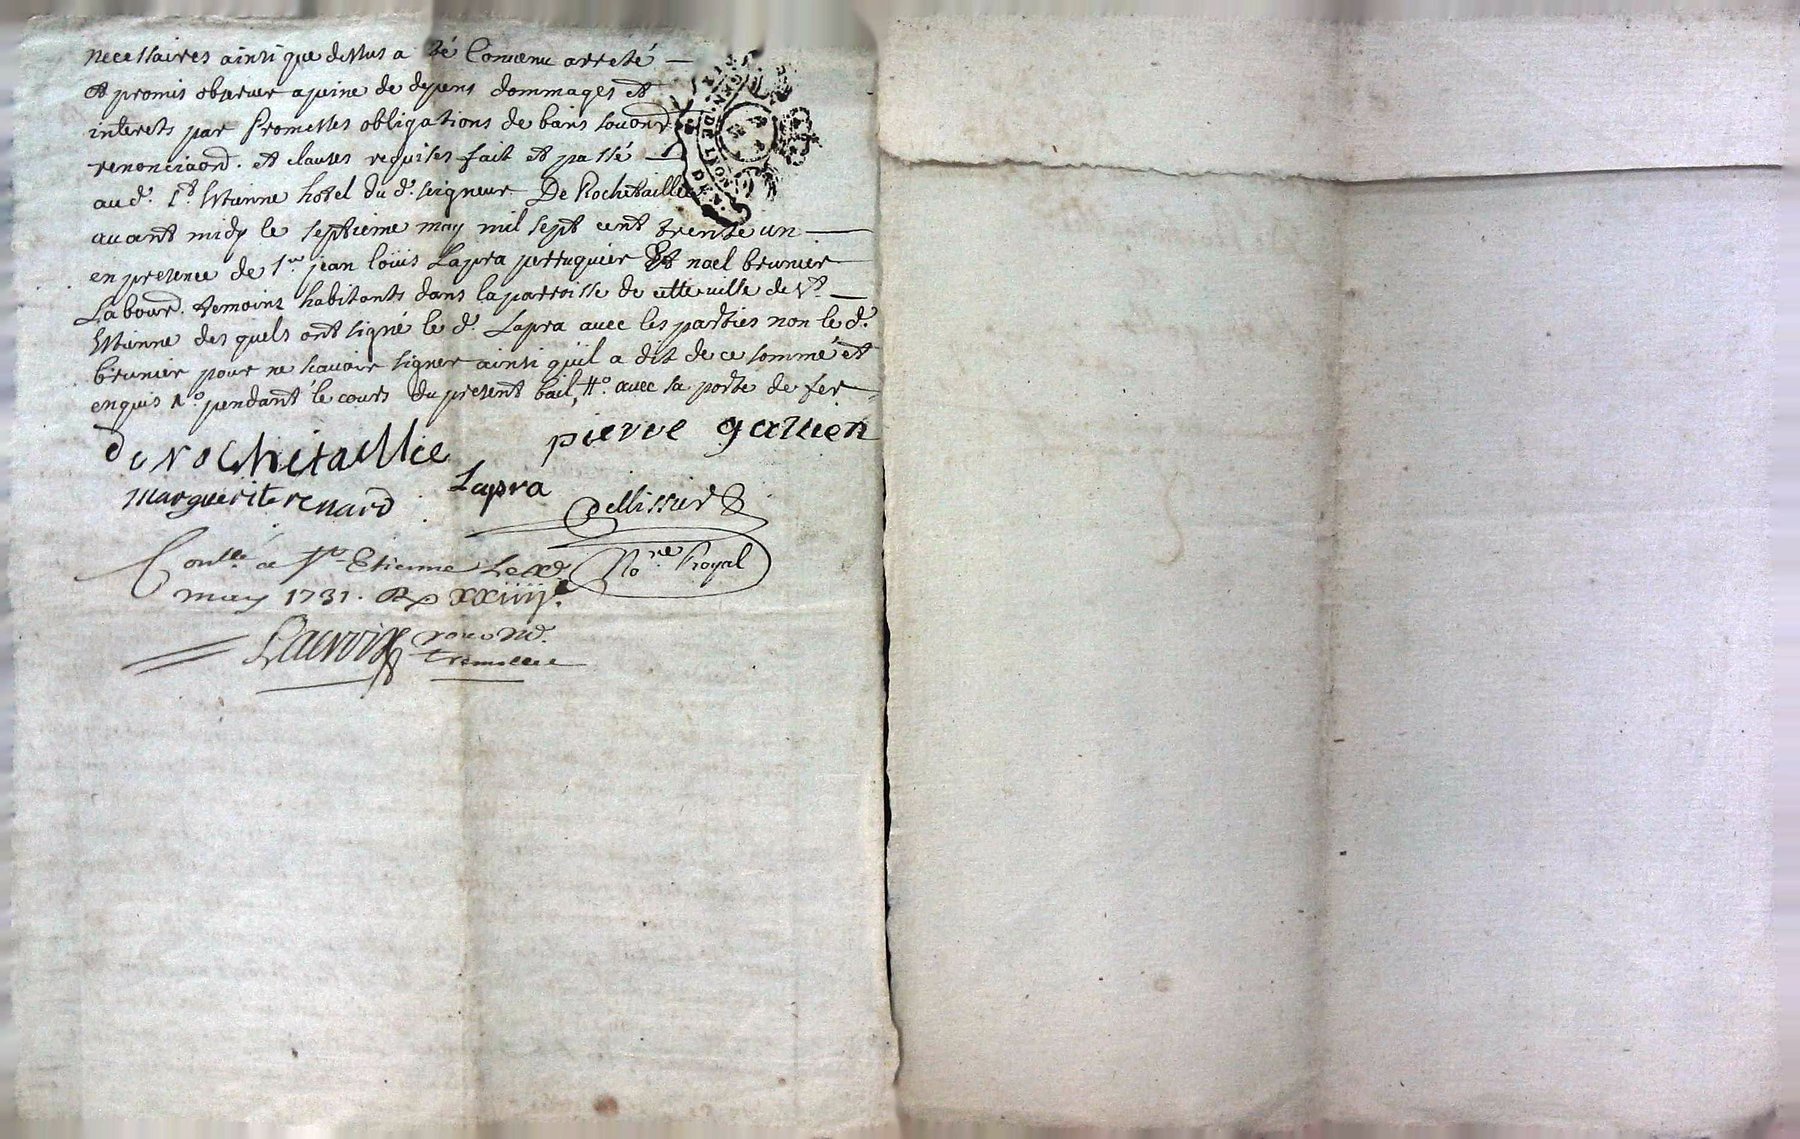 necessaires ainsi que dessus a été Convenu arreté
et promis observer a peine de depens dommages et
interets par Promesses obligations de bains
renonciaõn. et clauses requises fait et passé
au d. St. Estienne hotel du d. seigneur De Rochetaillée
avant midy le septieme may mil sept cent trente un
en presence de Sr. jean loüis Lapra perruquier Et noel brunier
Labour. temoins habitants dans la parroisse de cette ville de St.
Estienne des quels ont signé le d. Lapra avec les parties non le d.
brunier pour ne scavoir signer ainsi quil a dit de ce sommé et
enquis pendant le cours du present bail, avec sa porte de fer
de rochetaillee pierre gallien
marguerite renard Lapra
Pellissier
Contllé a St. Etienne Le Xe. No.re Royal
may 1731. R
Lacroix
DE LYON MONT